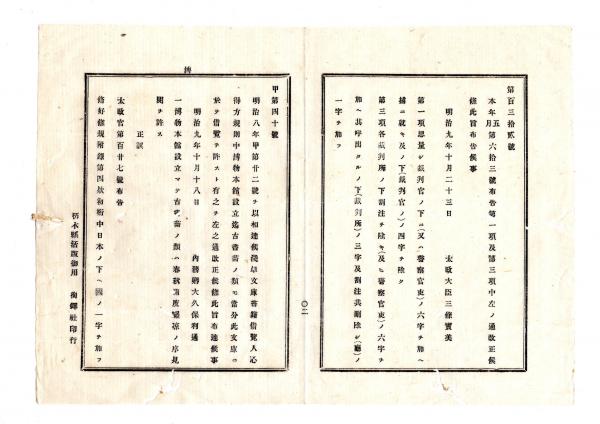 第百三拾貳號
本年五月第六拾三號布告第一項及第三項中左ノ通改正候
條此旨布告候事
明治九年十月二十三日
太政大臣三條實美
第一項思量シ裁判官ノ下ニ(又ハ警察官吏)ノ六字ヲ加ヘ
ニ就キ及ノ下(裁判官ノ)ノ四字ヲ除ク
第三項各裁判所ノ下割注ヲ除キ(及ヒ警察官吏)ノ六字ヲ
加ヘ其呼出タルノ下(裁判所)ノ三字及割注共刪除シ(廳)ノ
一字ヲ加フ
〇二
甲第四十號
明治八年甲第廿二號ヲ以相達候淺草文庫書籍借覽人心
得方規則中博物本館設立迄古書畵ノ類モ當分此文庫ニ
於テ借覽ヲ許スト有之ヲ左之通改正候條此旨布達候事
明治九年十月十八日
內務卿大久保利通
一博物本館設立マテ古書畵ノ類ハ春秋兩度曝凉ノ序見
閱ヲ許ス
正誤
太政官第百廿七號布告
修好條規附錄第四款和衙中日本ノ下ヘ國ノ一字ヲ加フ
栃木縣活版御用
社印行